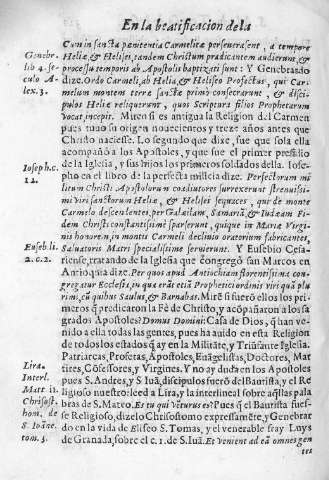 En la beatificacion de la
Cum in sancta pænitentia Carmelitæ perseuerasent, a tempore
Genebr. Heliæ, & Helisei, tandem Christum prædicantem audierunt, &
lib 4. se- processu temporis ab Apostolis baptizati sunt: Y Genebrardo
culo A- dize. Ordo Carmeli, ab Helia, & Heliseo Profectus, qui Car
lex. 3. melum montem terræ sanctæ primò consecrarunt, & disci
pulos Heliæ reliquerunt, quos Scriptura filios Prophetarum
vocat, incepit. Miren si es antigua la Religion del Carmen
pues tuuo su origen nouecientos y treze años antes que
Christo naciesse. Lo segundo que dize, fue que sola ella
acompañò a los Apostoles, y que fue el primer presidio
de la Iglesia, y sus hijos los primeros soldados della. Iose-
Ioseph. c. pho en el libro de la perfecta milicia dize. Perfectorum mi
12. litum Christi Apostolorum coadiutores surrexerunt strenuissi-
mi viri sanctorum Heliæ, & Helisei sequaces, qui de monte
Carmelo descendentes, per Galilæam, Samariã, & Iudæam Fi-
dem Christi constantissimè sparserunt, quique in Maria Virgi-
nis honorem, in montis Carmeli decliuio oratorium fabricantes,
Euseb. li- Saluatoris Matri specialissime seruierunt. Y Eusebio Cesa-
2. c. 2. riense, tratando de la Iglesia que congregò san Marcos en
Antioquia dize. Per quos apud Antiochiam florentissima con-
gregatur Ecclesia, in qua erãt etiã Propheticiordinis viri quã plu
rimi, cũ quibus Saulus, & Barnabas. Mirẽ si fuerõ ellos los pri-
meros q̃ predicaron la Fè de Christo, y acõpañaron a los sa-
grados Apostoles? Domus Domini: Casa de Dios, q̃ han ve-
nido a ella todas las gentes, pues ha auido en esta Religion
de todos los estados q̃ ay en la Militãte, y Triũfante Iglesia.
Patriarcas, Profetas, Apostoles, Euãgelistas, Doctores, Mar
tires, Cõfessores, y Virgines. Y no ay duda en los Apostoles
Lira. pues S. Andres, y S. Iuã, discipulos fuerõ del Bautista, y el Re
Interl. ligioso nuestro: leed a Lira, y la interlineal sobre aq̃llas pala
Matt 11. bras de S. Mateo. Es tu qui vẽturus es? Pues q̃ el Bautista fues-
Chrisost. se Religioso, dizelo Chrisostomo expressamẽte, y Genebrar
hom. de do en la vida de Eliseo S. Tomas, y el venerable fray Luys
S. Ioãne. de Granada, sobre el c. 1. de S. Iuã. Et venient ad eã omnes gen
tom. 3. tes